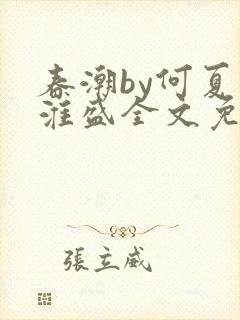 春潮by何夏
淮盛全文免
張立威